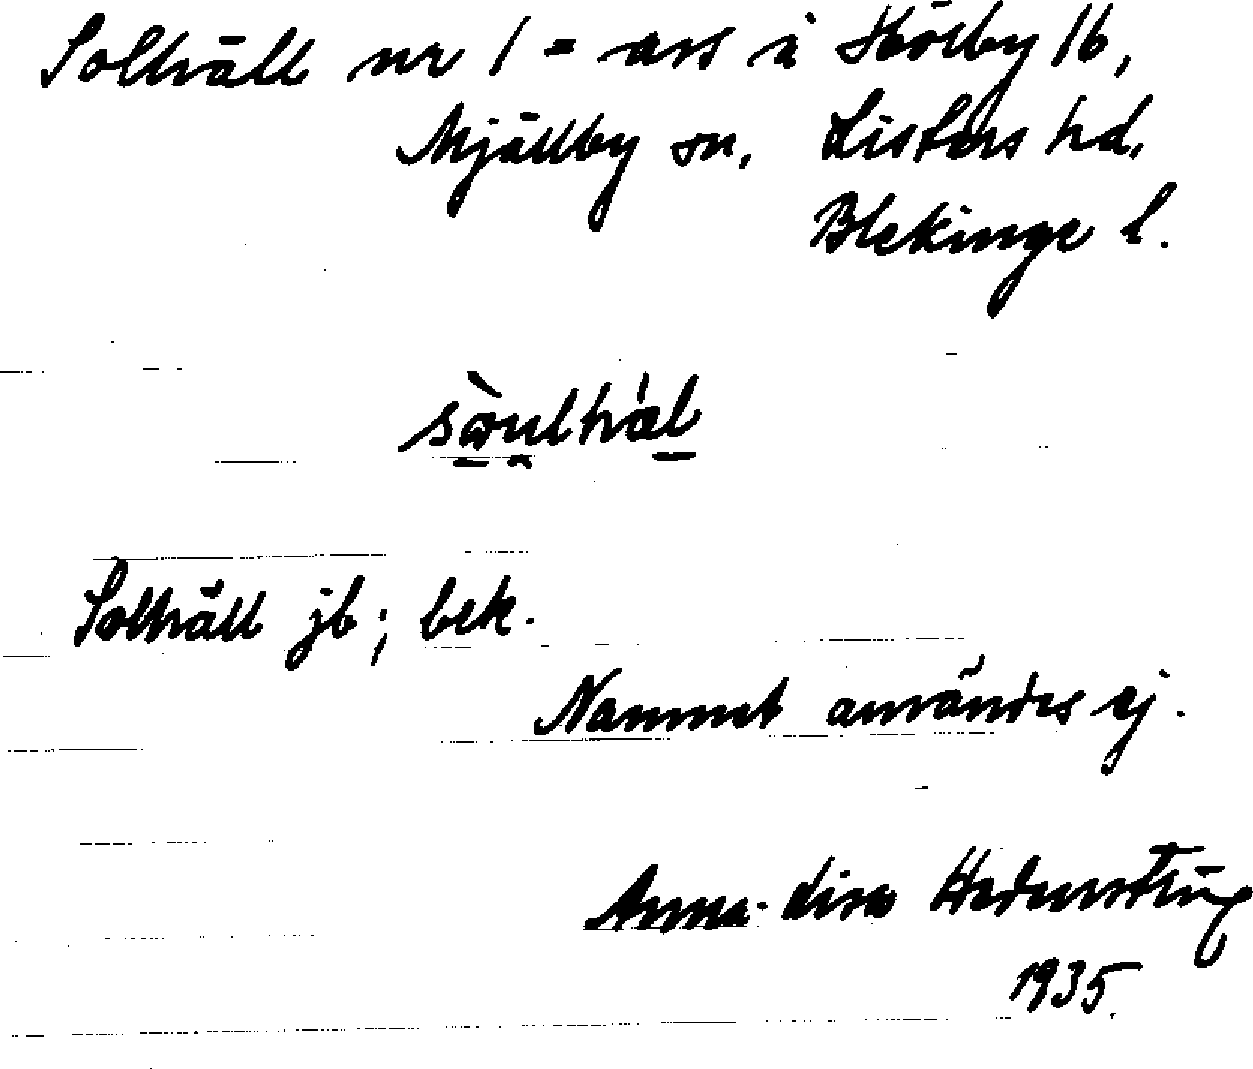 Solhäll nr 1 = avs å Hörby 16,
Mjällby sn, Listers hd,
Blekinge l.
sòᶙlhæ̍l
Solhäll jb; bek.
Namnet användes ej.
Anna-Lisa
1935.